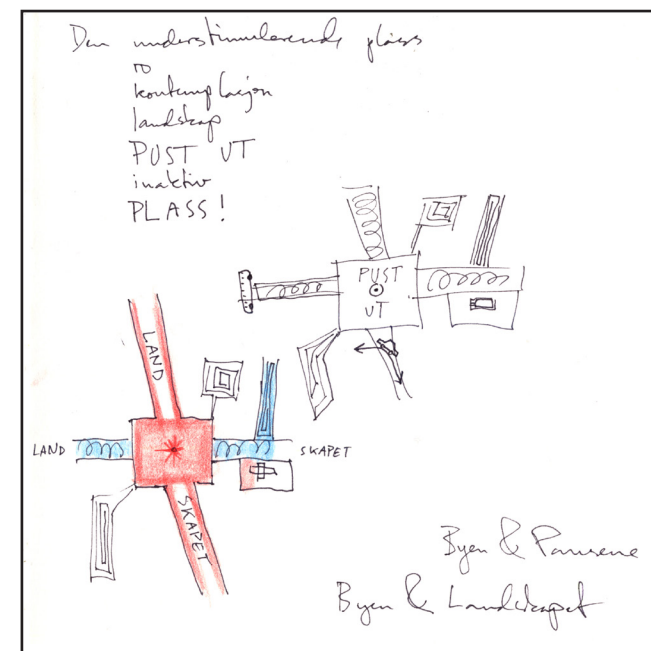 Den understimulerende plass
ro
kontemplasjon
landskap
PUST UT
inaktiv
PLASS!
PUST
UT
LAND
LAND
SKAPET
SKAPET
Byen & Pausene
Byen & Landskapet